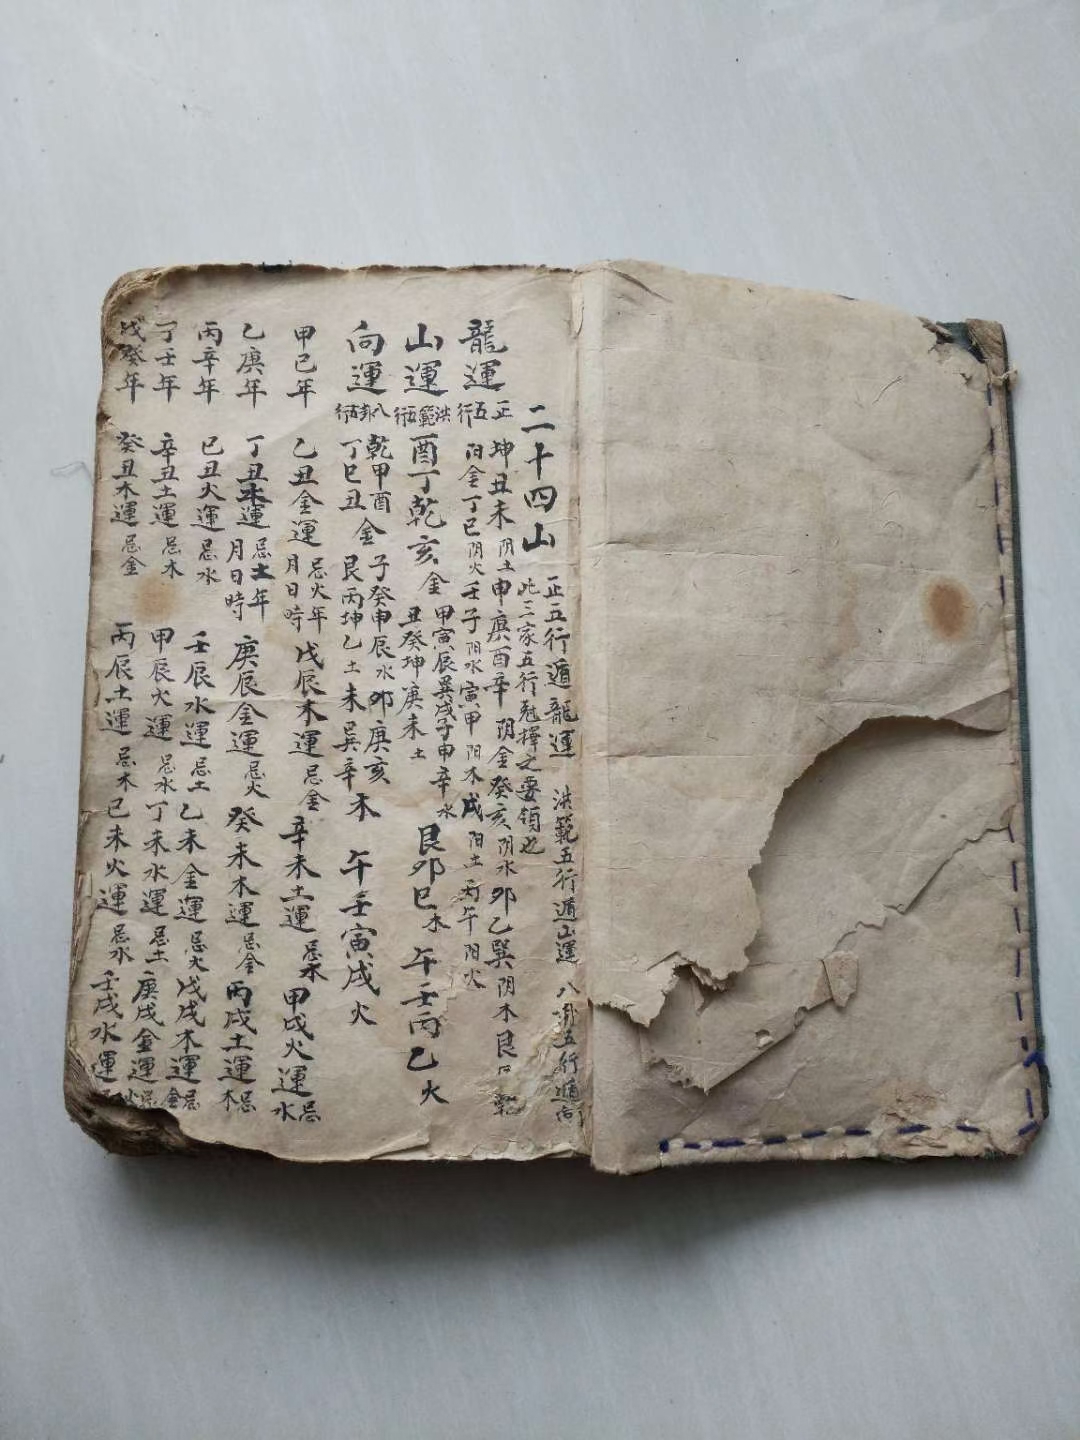 二十四山 正五行遁龍運 洪範五行遁山運 八卦五行遁向
此三家五行尅擇之要領也
龍運 正五行 坤丑未阴土申庚酉辛阴金癸亥阴水卯乙巽阴木艮
阳金丁巳阴火壬子阳水寅甲阳木戌阳土丙午阳火
山運 洪範五行 酉丁乾亥金 甲寅辰巽戌子申辛水 艮卯巳木 午壬丙乙火
丑癸坤庚未土
向運 八卦五行 乾甲酉丁巳丑金 子癸申辰水 卯庚亥未巽辛木 午壬寅戌火
艮丙坤乙土
甲巳年 乙丑金運忌火年月日時 戊辰木運忌金 辛未土運忌木 甲戌火運忌水
乙庚年 丁丑水運忌土年月日時 庚辰金運忌火 癸未木運忌金 丙戌土運忌木
丙辛年 巳丑火運忌水 壬辰水運忌土 乙未金運忌火 戊戌木運忌金
丁壬年 辛丑土運忌木 甲辰火運忌水 丁未水運忌土 庚戌金運忌火
戊癸年 癸丑木運忌金 丙辰土運忌木 巳未火運忌水 壬戌水運